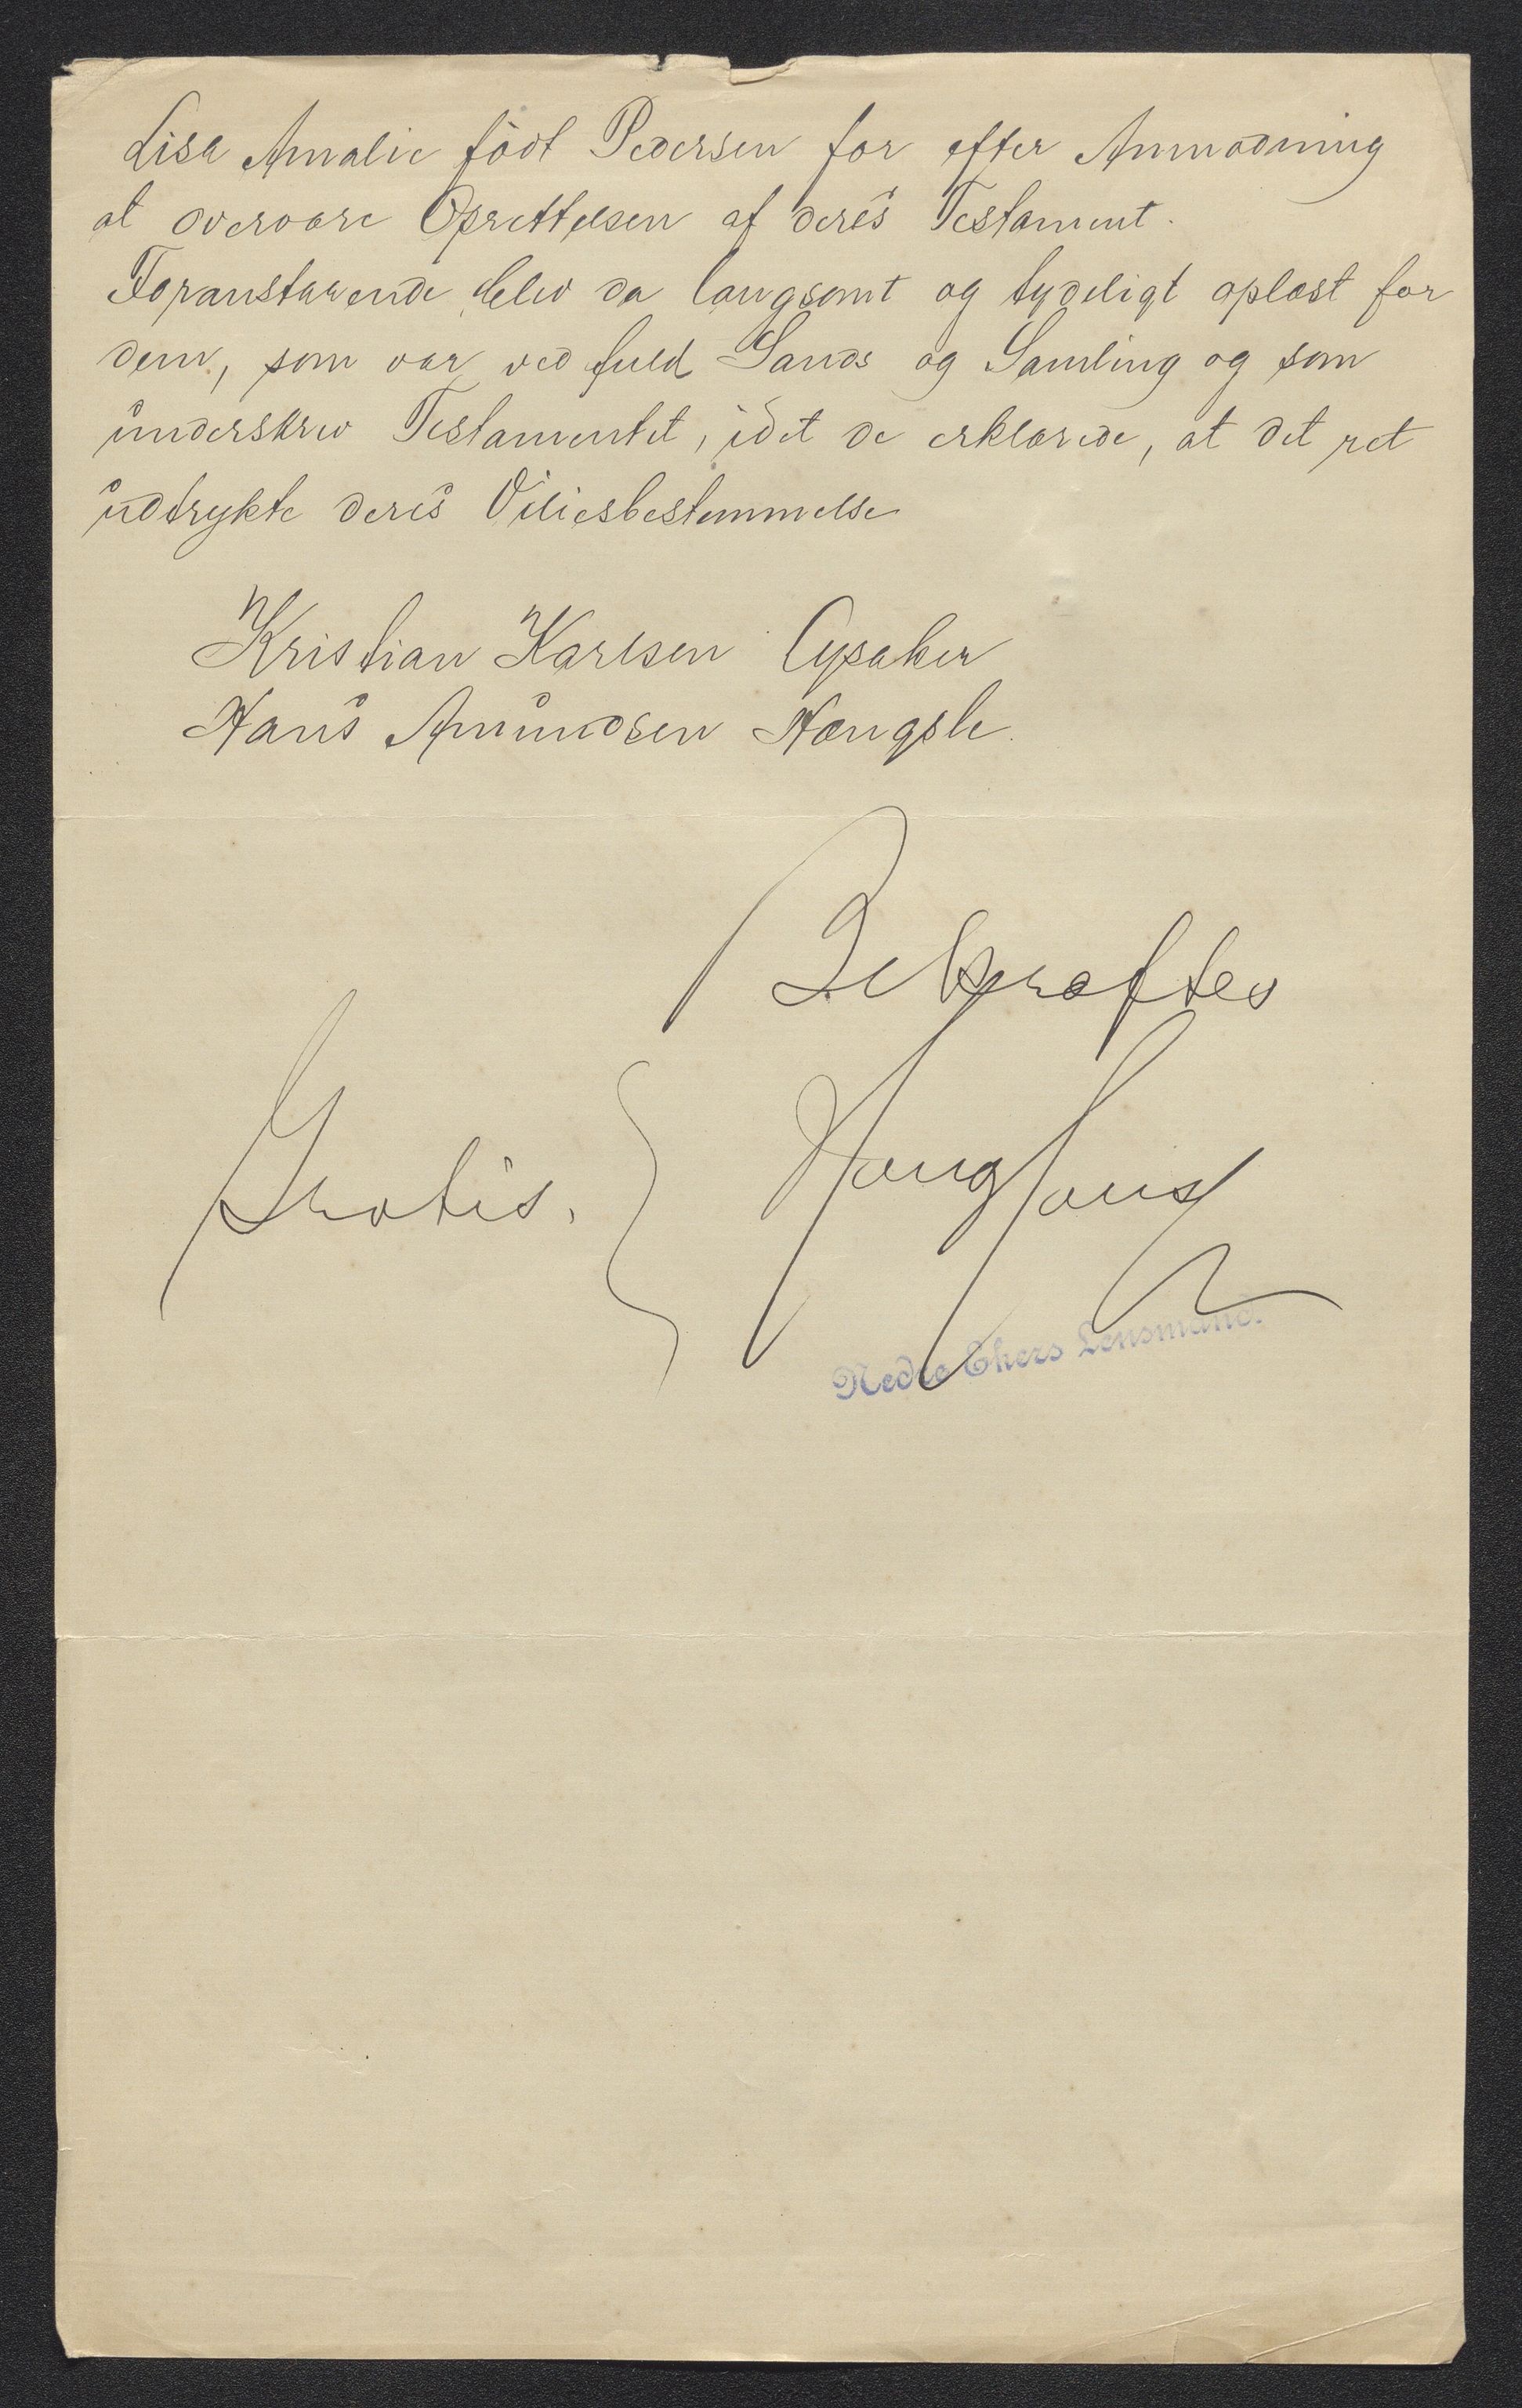 Lisa Amalie født Pedersen for efter Anmodning
at overvære Oprettelsen af deres Testament.
Foranstaaende blev da langsomt og tydeligt oplæst for
dem, som var ved fuld Sands og Samling og som
underskrev Testamentet, idet de erklærede, at det ret
udtrykte deres Viliesbestemmelse
Kristian Karlsen
Hans Amundsen Hængsle.
Bekræftes
Gratis.
Nedre Ekers Lensmand.